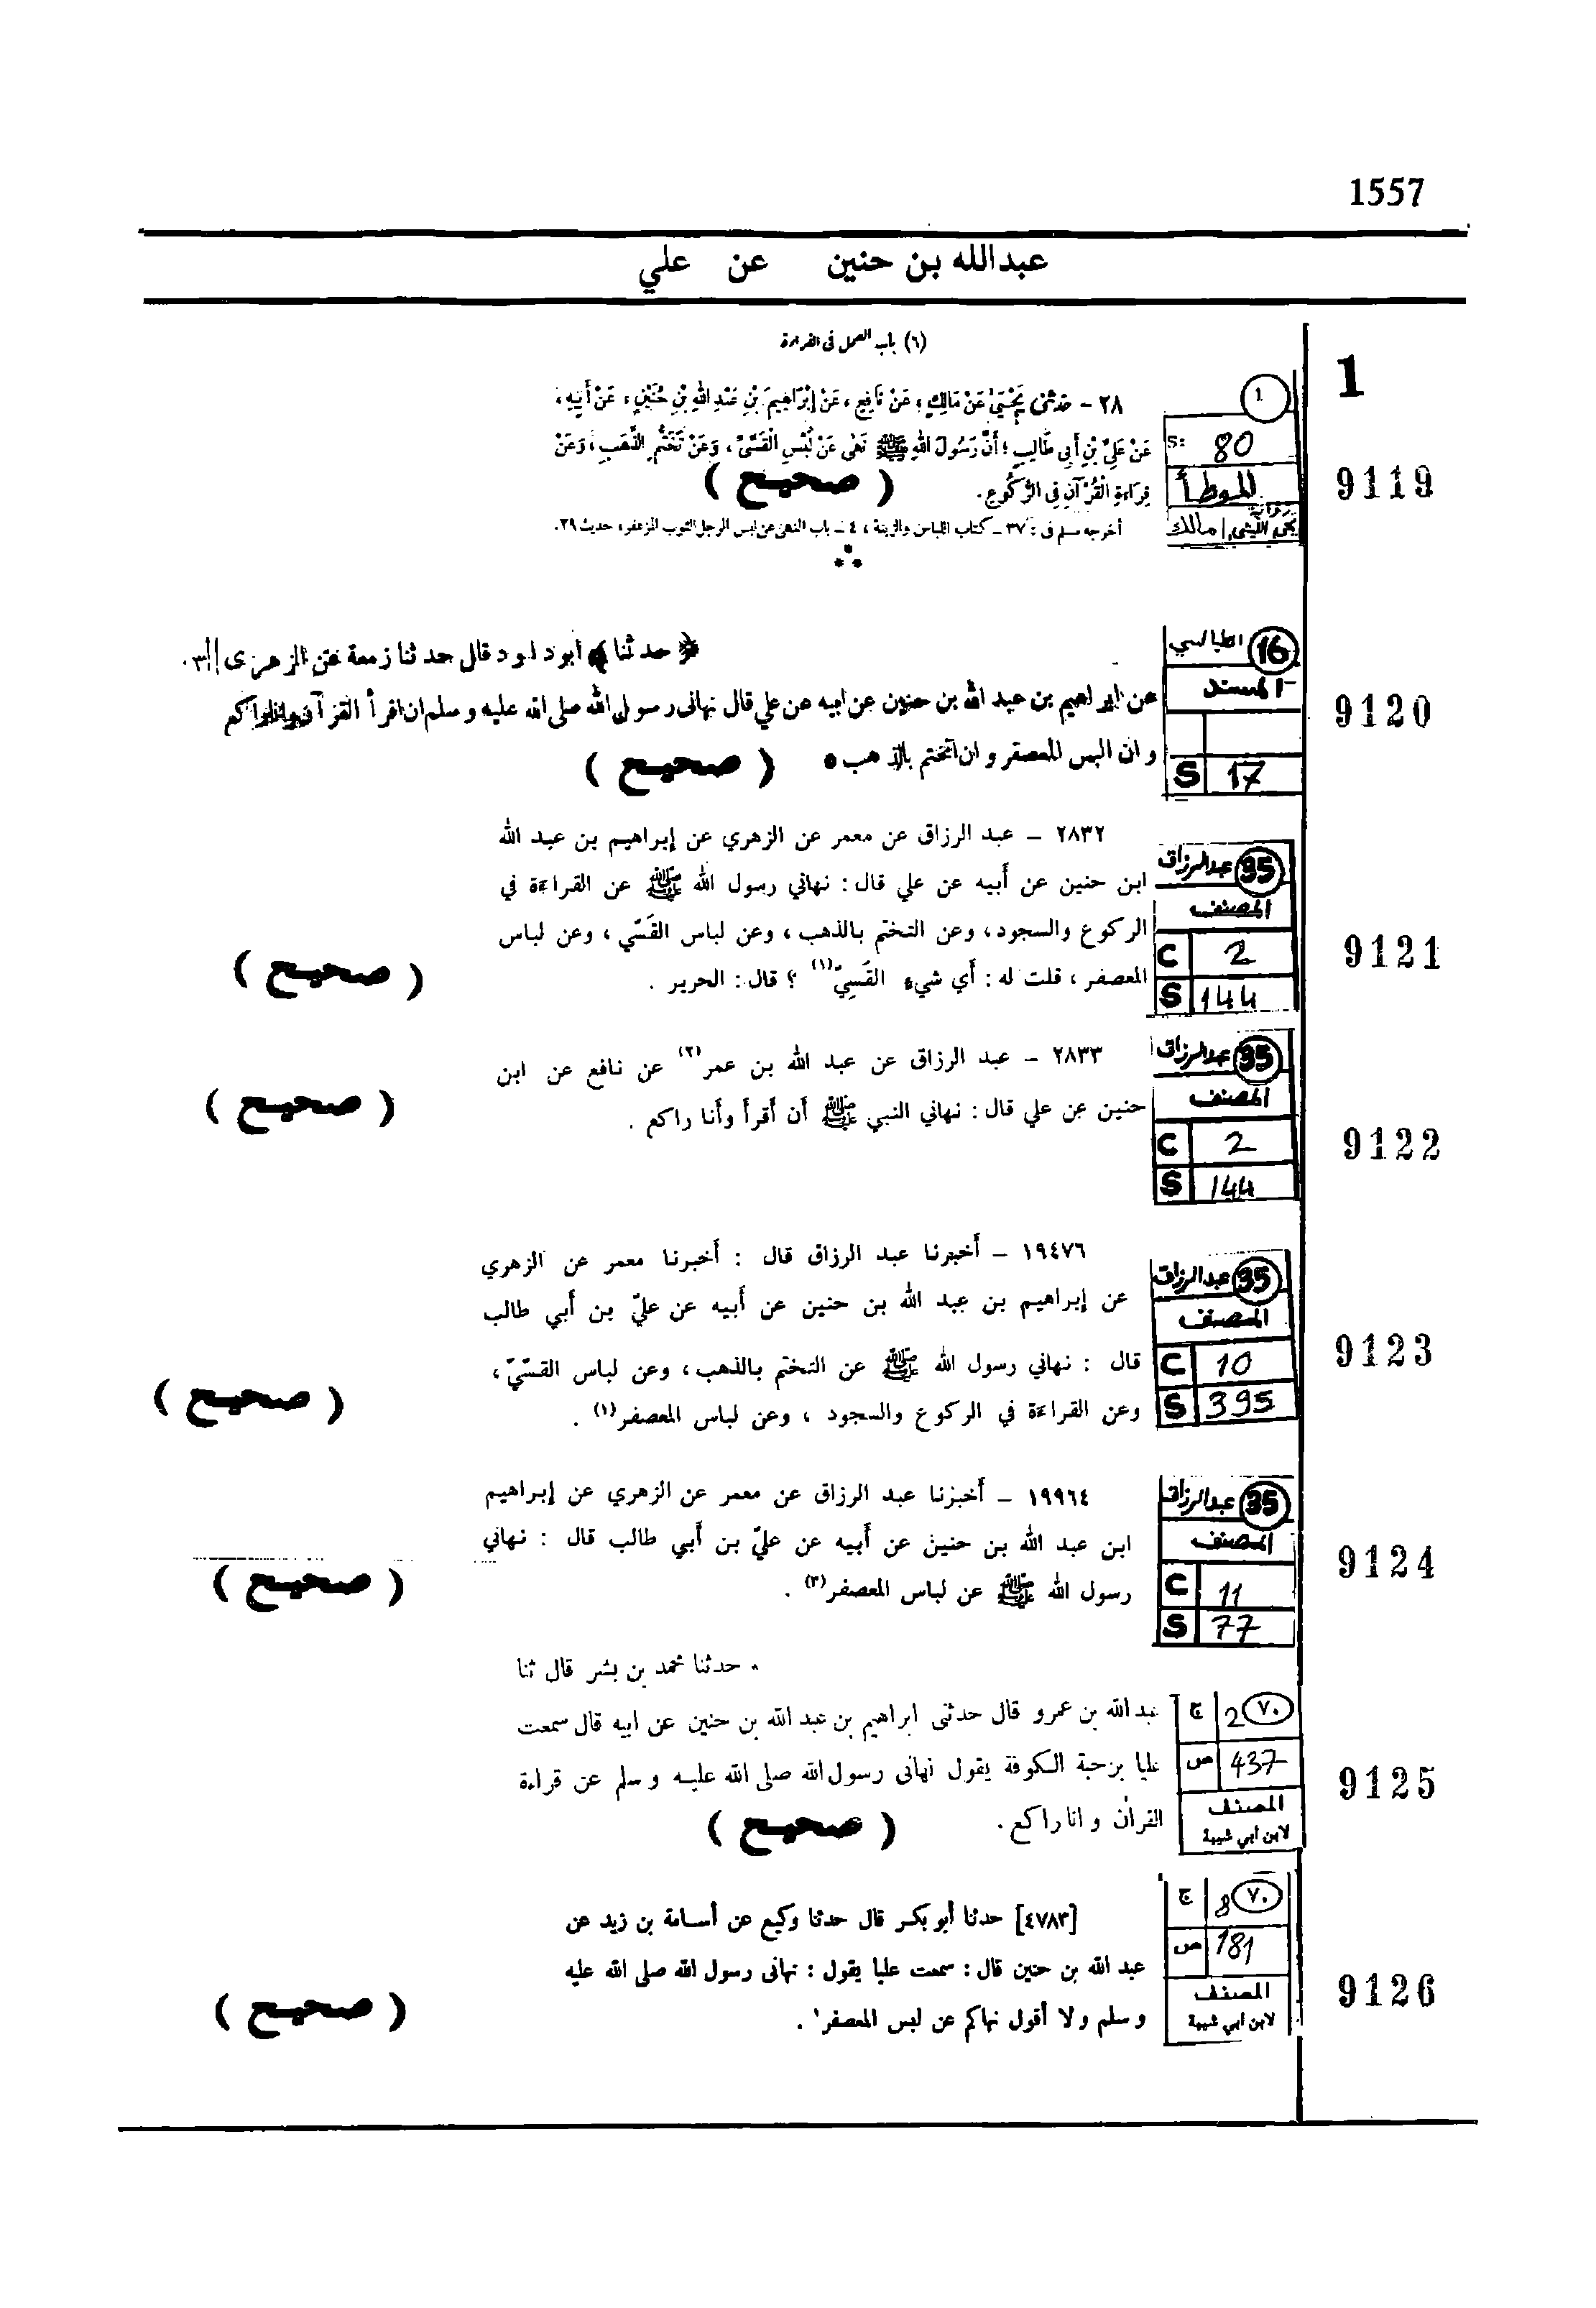 1557
عبدالله بن حنين عن علي
(٦) باب العمل فى القراءة
1
1
٢٨ – حَدَّثَنِى يَحْيَىٰ عَنْ مَالِكٍ، عَنْ نَافِعٍ، عَنْ إِبْرَاهِيمَ بْنِ عَبْدِ اللهِ بْنِ حُنَيْنٍ، عَنْ أَبِيهِ،
عَنْ عَلِيِّ بْنِ أَبِى طَالِبٍ؛ أَنَّ رَسُولَ اللهِ ﷺ نَهَى عَنْ لُبْسِ الْقَسِّىِّ، وَعَنْ تَخَتُّمِ الذَّهَبِ، وَعَنْ
قِرَاءَةِ الْقُرْآنِ فِى الرُّكُوعِ.
( صحيح )
أخرجه مسلم فى : ٣٧ – كتاب اللباس والزينة، ٤ – باب النهى عن لبس الرجل الثوب المزعفر، حديث ٢٩.
S: 80
الموطأ
رواية
يحيى الليثي / مالك
9119
﴿ حدثنا ﴾ ابو داود قال حدثنا زمعة عن الزهرى
عن ابراهيم بن عبد الله بن حنين عن ابيه عن علي قال نهانى رسول الله صلى الله عليه وسلم ان اقرأ القرآن وانا راكع
و ان البس المعصفر و ان اتختم بالذهب ٥
( صحيح )
16 الطيالسي
المسند
S 17
9120
٢٨٣٢ – عبد الرزاق عن معمر عن الزهري عن إبراهيم بن عبد الله
ابن حنين عن أبيه عن علي قال : نهاني رسول الله ﷺ عن القراءة في
الركوع والسجود، وعن التختم بالذهب، وعن لباس القَسّي، وعن لباس
المعصفر، قلت له : أي شيء القَسِيّ(١) ؟ قال : الحرير .
( صحيح )
35 عبدالرزاق
المصنف
C 2
S 144
9121
٢٨٣٣ – عبد الرزاق عن عبد الله بن عمر(٢) عن نافع عن ابن
حنين عن علي قال : نهاني النبي ﷺ أن أقرأ وأنا راكع .
( صحيح )
35 عبدالرزاق
المصنف
C 2
S 144
9122
١٩٤٧٦ – أخبرنا عبد الرزاق قال : أخبرنا معمر عن الزهري
عن إبراهيم بن عبد الله بن حنين عن أبيه عن عليّ بن أبي طالب
قال : نهاني رسول الله ﷺ عن التختم بالذهب، وعن لباس القسّيّ،
وعن القراءة في الركوع والسجود ، وعن لباس المعصفر(١) .
( صحيح )
35 عبدالرزاق
المصنف
C 10
S 395
9123
١٩٩٦٤ – أخبرنا عبد الرزاق عن معمر عن الزهري عن إبراهيم
ابن عبد الله بن حنين عن أبيه عن عليّ بن أبي طالب قال : نهاني
رسول الله ﷺ عن لباس المعصفر(٣) .
( صحيح )
35 عبدالرزاق
المصنف
C 11
S 77
9124
حدثنا محمد بن بشر قال ثنا
عبد الله بن عمرو قال حدثنى ابراهيم بن عبد الله بن حنين عن ابيه قال سمعت
عليا برحبة الكوفة يقول نهانى رسول الله صلى الله عليه وسلم عن قراءة
القرآن و انا راكع .
( صحيح )
٧٠ 2 ج
437 ص
المصنف
لابن أبي شيبة
9125
[٤٧٨٣] حدثنا أبو بكر قال حدثنا وكيع عن أسامة بن زيد عن
عبد الله بن حنين قال : سمعت عليا يقول : نهانى رسول الله صلى الله عليه
و سلم ولا أقول نهاكم عن لبس المعصفر .
( صحيح )
٧٠ 8 ج
181 ص
المصنف
لابن أبي شيبة
9126